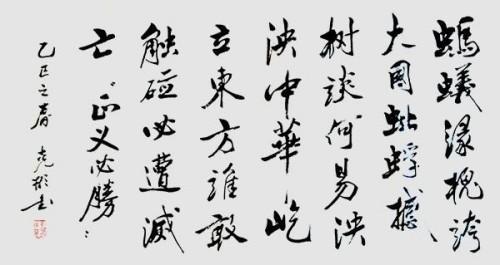 螞蟻緣槐誇
大國蚍蜉撼
树談何易泱
泱中華屹
立東方誰敢
触碰必遭滅
亡正义必勝
乙巳之春 克彬书